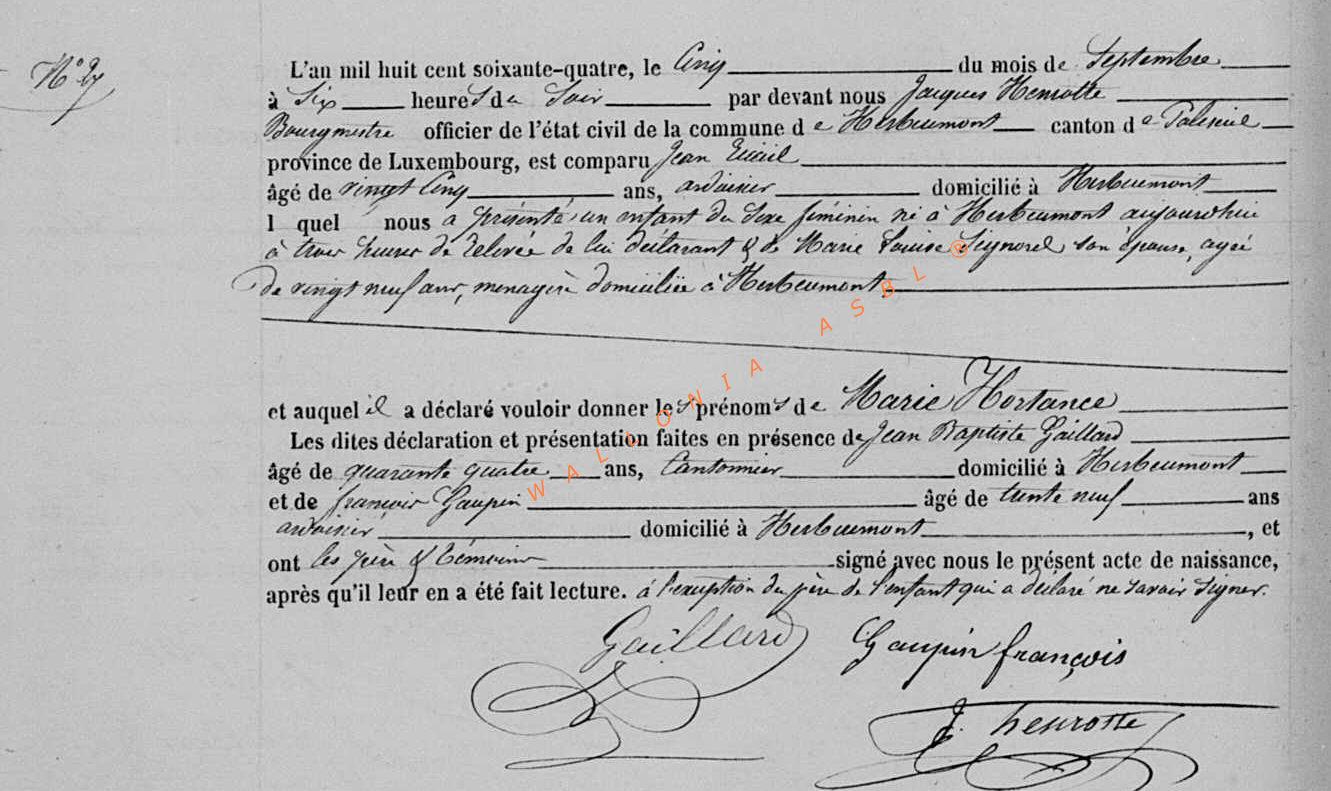 N° 27
L'an mil huit cent soixante-quatre, le Cinq du mois de Septembre
à Six heures du Soir par devant nous Jacques Henrotte
Bourgmestre officier de l'état civil de la commune de Herbeumont canton de Paliseul
province de Luxembourg, est comparu Jean
âgé de vingt Cinq ans, ardoisier domicilié à Herbeumont
l quel nous a présenté un enfant du Sexe féminin né à Herbeumont aujourd'hui
à trois heures de relevée de lui déclarant & de Marie Louise Signorel son épouse, agée
de vingt neuf ans, menagère domiciliée à Herbeumont
et auquel il a déclaré vouloir donner les prénoms de Marie Hortance
Les dites déclaration et présentation faites en présence de Jean Baptiste Gaillard
âgé de quarante quatre ans, Cantonnier domicilié à Herbeumont
et de françois Gaupin âgé de trente neuf ans
ardoisier domicilié à Herbeumont, et
ont les père & témoins signé avec nous le présent acte de naissance,
après qu'il leur en a été fait lecture. à l'exception du père de l'enfant qui a déclaré ne savoir Signer.
Gaillard Gaupin françois
J. henrotte
WALLONIA ASBL ®